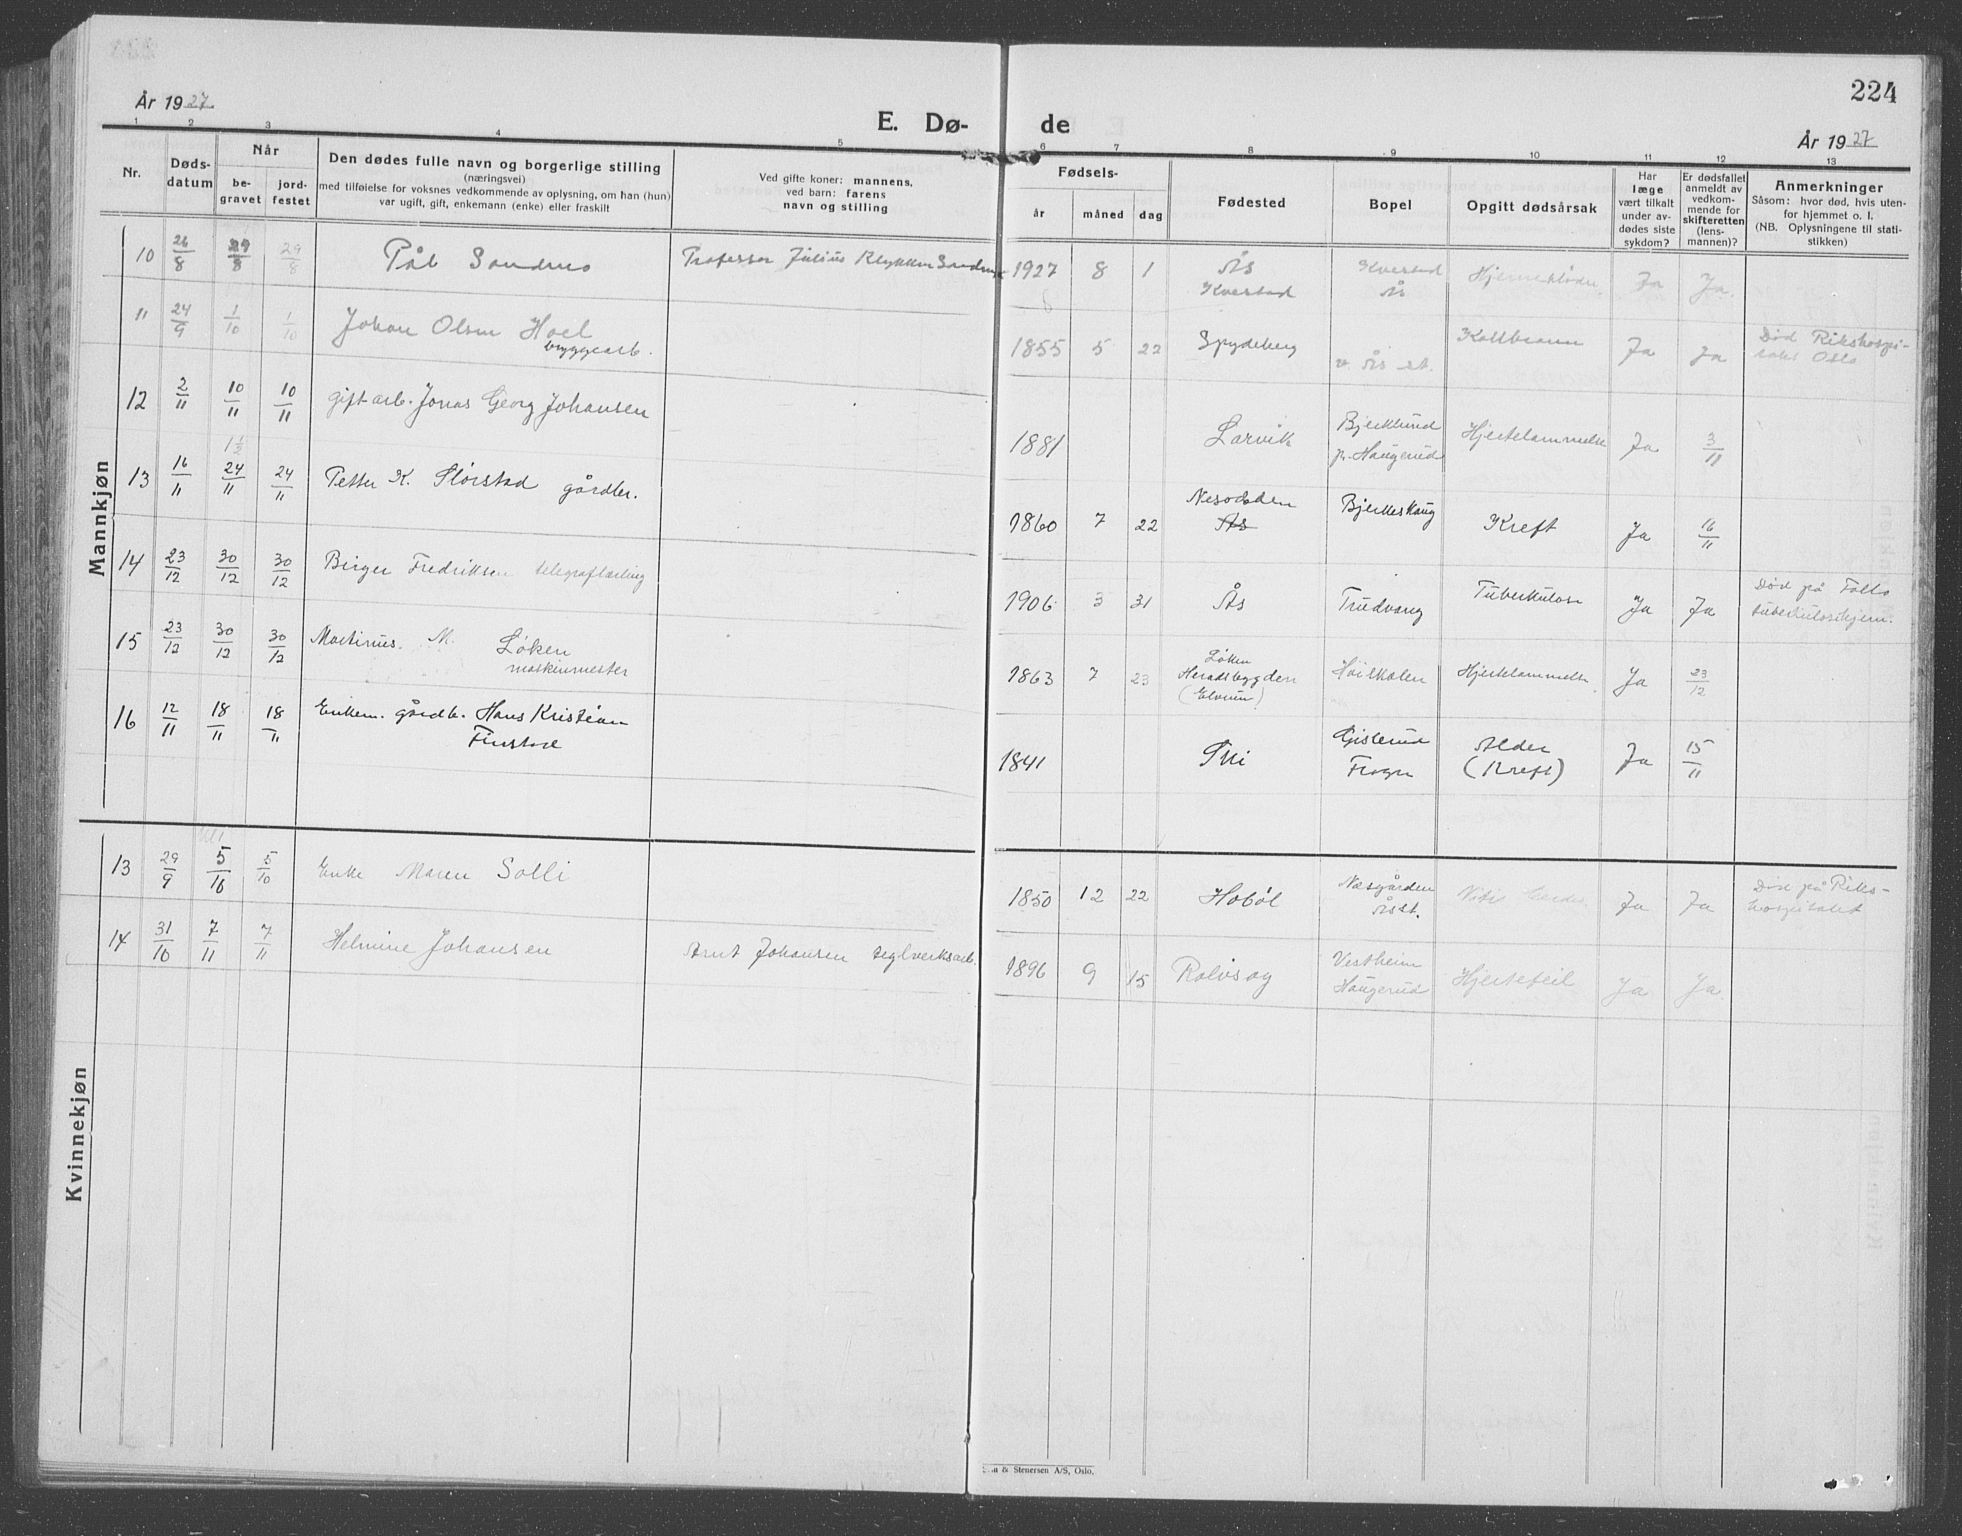 224
År 1927
E. Dø-
de
År 1927
1 2 3 4 5 6 7 8 9 10 11 12 13
Nr.
Døds-
datum
Når
be-
gravet
jord-
festet
Den dødes fulle navn og borgerlige stilling
(næringsvei)
med tilføielse for voksnes vedkommende av oplysning, om han (hun)
var ugift, gift, enkemann (enke) eller fraskilt
Ved gifte koner: mannens,
ved barn: farens
navn og stilling
Fødsels-
år
måned
dag
Fødested
Bopel
Opgitt dødsårsak
Har
læge
vært tilkalt
under av-
dødes siste
sykdom?
Er dødsfallet
anmeldt av
vedkom-
mende for
skifteretten
(lens-
mannen)?
Anmerkninger
Såsom: hvor død, hvis uten-
for hjemmet o. l.
(NB. Oplysningene til stati-
stikken)
Mannkjøn
10 26/8 29/8 29/8 Pål Sandmo Professor Julius 1927 8 1 Ås Kvestad Kvestad Ås Ja Ja.
11 24/9 1/10 1/10 Johan Olsen Hoel
byggearb. 1855 5 22 Spydeberg v. Ås st. Koldbrann Ja Ja Død Rikshospi-
talet Oslo
12 2/11 10/11 10/11 gift arb. Jonas Georg Johansen 1881 Larvik Bjerklund
pr. Haugerud Hjertelammelse Ja 3/11
13 16/11 24/11 24/11 Petter K. Slorstad gårdbr. 1860 7 22 Nesodden
Ås Bjerkeskaug Kreft Ja 16/11
14 23/12 30/12 30/12 Birger Fredriksen telegraflærling 1906 3 31 Ås Trudvang Tuberkulose Ja Ja Død på Follo
tuberkulosehjem.
15 23/12 30/12 30/12 Martinus. M. Løken
maskinmester 1863 7 23 Løken
Heradsbygden
(Elvrum) Høiskolen Hjertelammelse Ja 23/12
16 12/11 18/11 18/11 Enkem. gårdb. Hans Kristian
Finstad 1841 Ski Gislerud
Frogn Alder
(Kreft) Ja 15/11
Kvinnekjøn
13 29/9 5/10 5/10 Enke Maren Solli 1850 12 22 Hobøl Næsgården
Ås st. Ja Ja Død på Riks-
hospitalet
14 31/10 7/11 7/11 Helmine Johansen Arnt Johansen teglverksarb. 1896 9 15 Rolvsøy Vestheim
Haugerud Hjertefeil Ja Ja
& Stenersen A/S, Oslo.